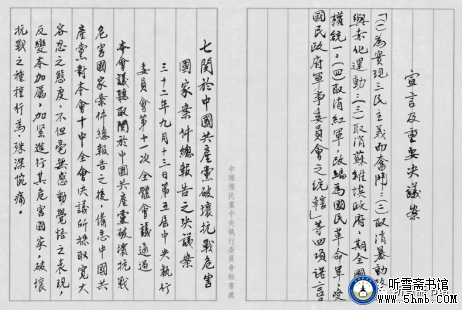 宣言及重要決議案
「(一)為實現三民主義而奮鬥;(二)取消暴動
與赤化運動;(三)取消蘇維埃政府,期全國
權統一;(四)取消紅軍,改編為國民革命軍,受
國民政府軍事委員會之統轄」等四項諾言
中國國民黨中央執行委員會秘書處
七 關於中國共產黨破壞抗戰危害
國家案件總報告之決議案
三十二年九月十三日第五屆中央執行
委員會第十一次全體會議通過
本會議聽取關於中國共產黨破壞抗戰
危害國家案件總報告之後,備悉中國共
產黨對本會十中全會決議所採取寬大
容忍之態度,不但毫無感動覺悟之表現,
反變本加厲,加緊進行其危害國家,破壞
抗戰之種種行為,殊深惋痛。
听雪斋书馆
www.51hmb.com